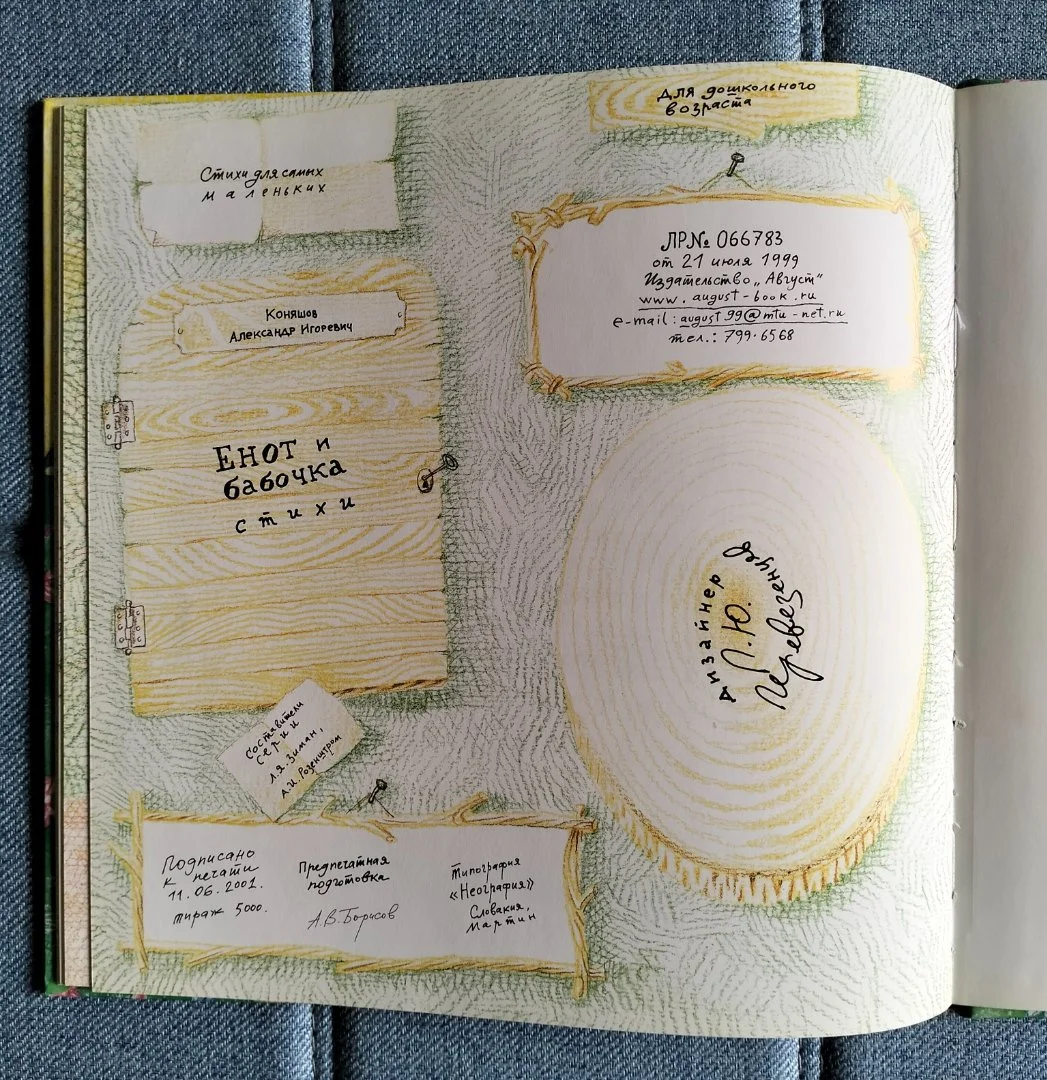 Стихи для самых
маленьких
Коняшов
Александр Игоревич
Енот и
бабочка
стихи
Составители
серии
Л.Я. Зиман,
А.И. Розенштром
Подписано
к печати
11.06.2001.
тираж 5000.
Предпечатная
подготовка
А.В. Борисов
Типография
«Неография»
Словакия,
Мартин
Для дошкольного
возраста
ЛР№ 066783
от 21 июля 1999
Издательство „Август“
www.august-book.ru
e-mail: august99@mtu-net.ru
тел.: 799-6568
дизайнер
Л.Ю.
Перевезенцев